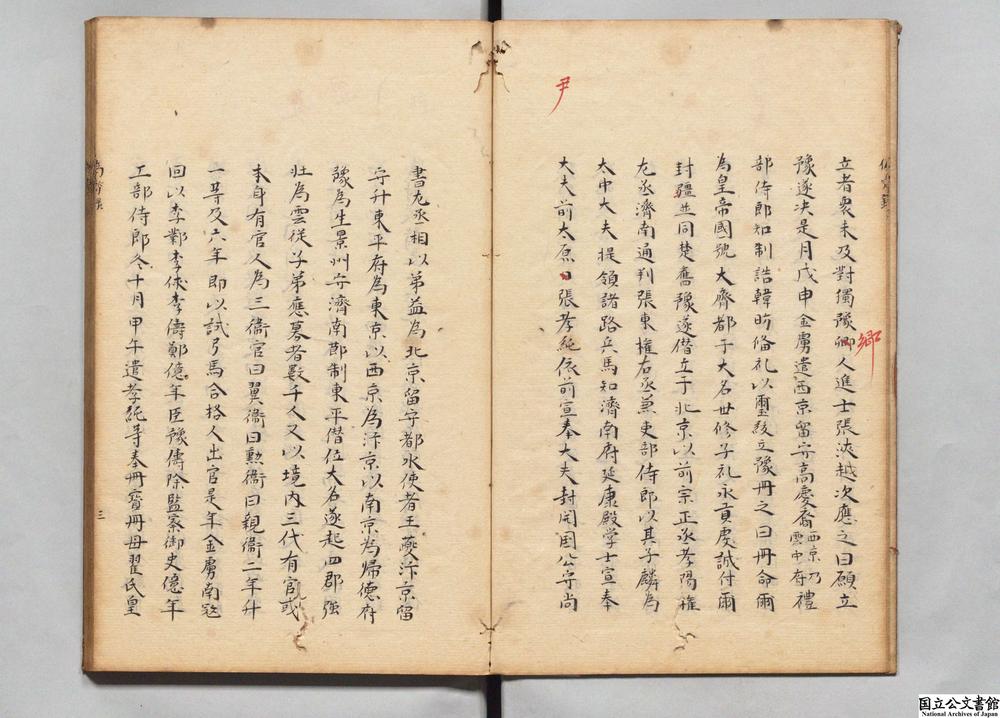 立者衆未及對獨豫卿人進士張浹越次應之曰願立
鄉
豫遂决是月戊申金虜遣西京留守高慶裔西京乃雲中府禮
部侍郎知制誥韓昉俻礼以璽綬立豫冊之曰冊命爾
為皇帝國號大齊都于大名世修子礼永貢虔誠付爾
封疆並同楚舊豫遂僭立于北京以前宗正丞李陽權
左丞濟南通判張東權右丞兼吏部侍郎以其子麟為
太中大夫提領諸路兵馬知濟南府延康殿学士宣奉
大夫前太原日張孝純依前宣奉大夫封開国公守尚
尹
書左丞相以弟益為北京留守都水使者王夔汴京留
守升東平府為東京以西京為汴京以南京為帰德府
豫為生景州守濟南節制東平僭位大名遂起四郡强
壮為雲従子弟應募者数千人又以境内三代有官或
本身有官人為三衞官曰翼衞曰勲衞曰親衞二年升
一等及六年即以試弓馬合格人出官是年金虜南寇
回以李鄴李俅李儔鄭億年臣豫儔除監察御史億年
工部侍郎冬十月甲午遣孝純等奉冊寳冊母翟氏皇
三
国立公文書館
National Archives of Japan